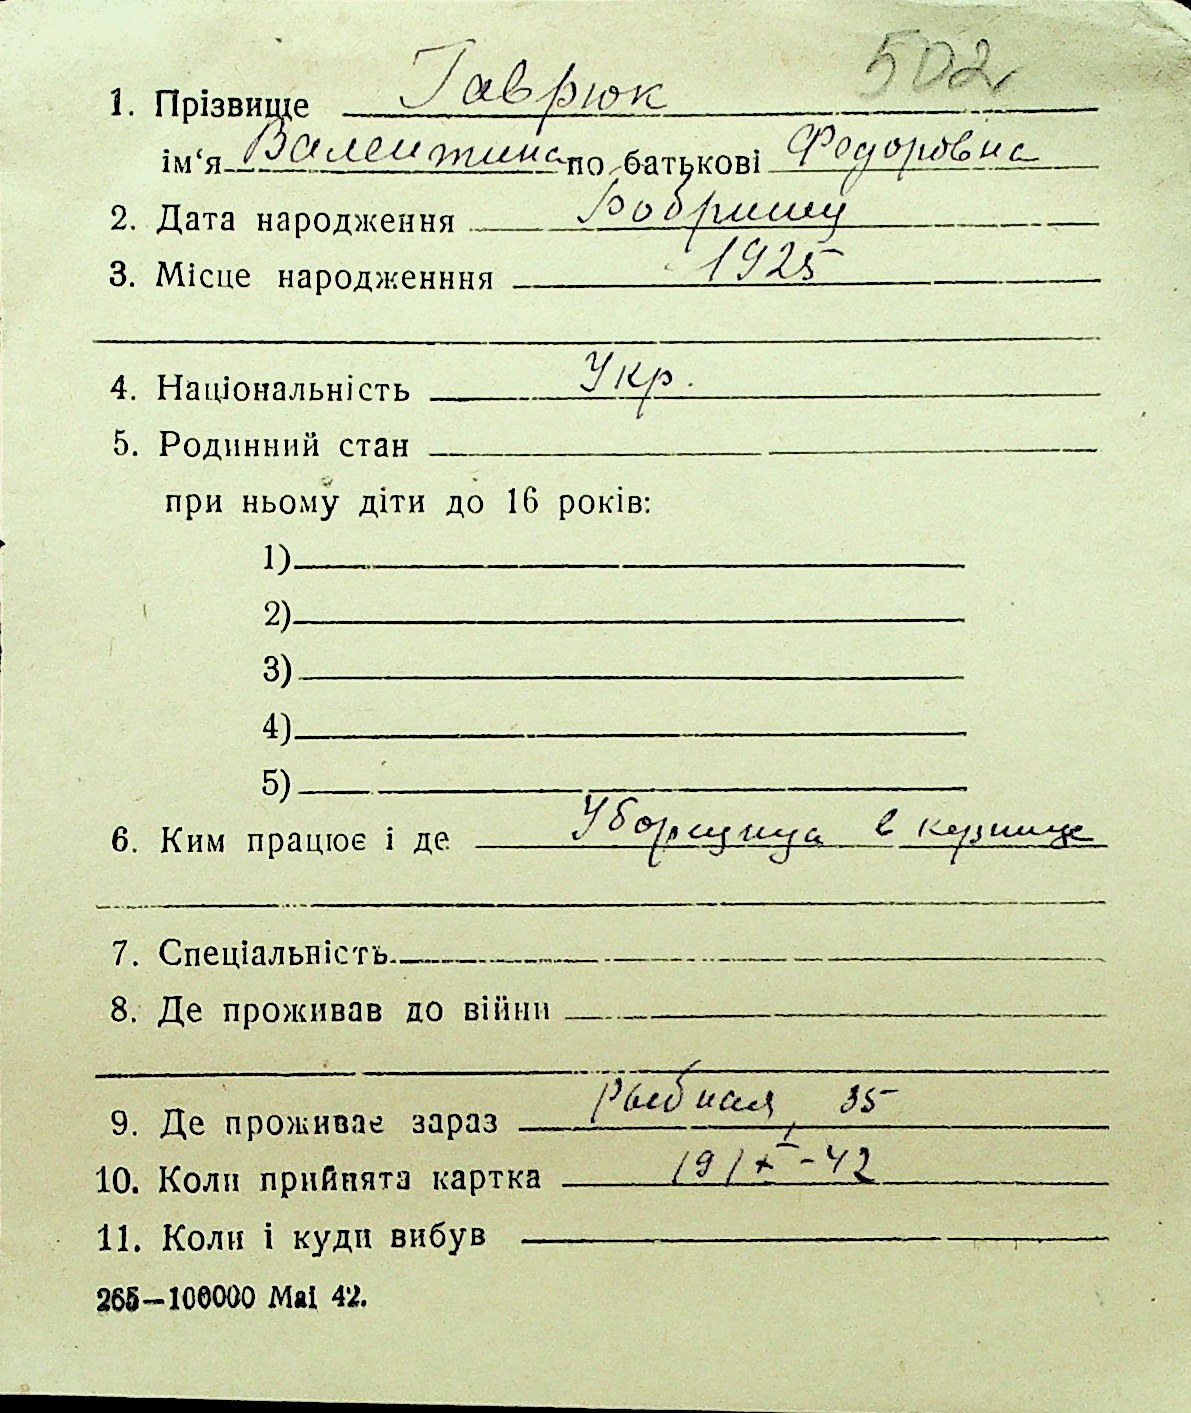 502
1. Прізвище Гаврюк
ім‘я Валентина по батькові Федоровна
2. Дата народження
3. Місце народженння 1925
4. Національність Укр.
5. Родинний стан
при ньому діти до 16 років:
1)
2)
3)
4)
5)
6. Ким працює і де Уборщица в кузнице
7. Спеціальність
8. Де проживав до війни
9. Де проживає зараз Рыбная, 35
10. Коли прийнята картка
11. Коли і куди вибув
265—100000 Mai 42.